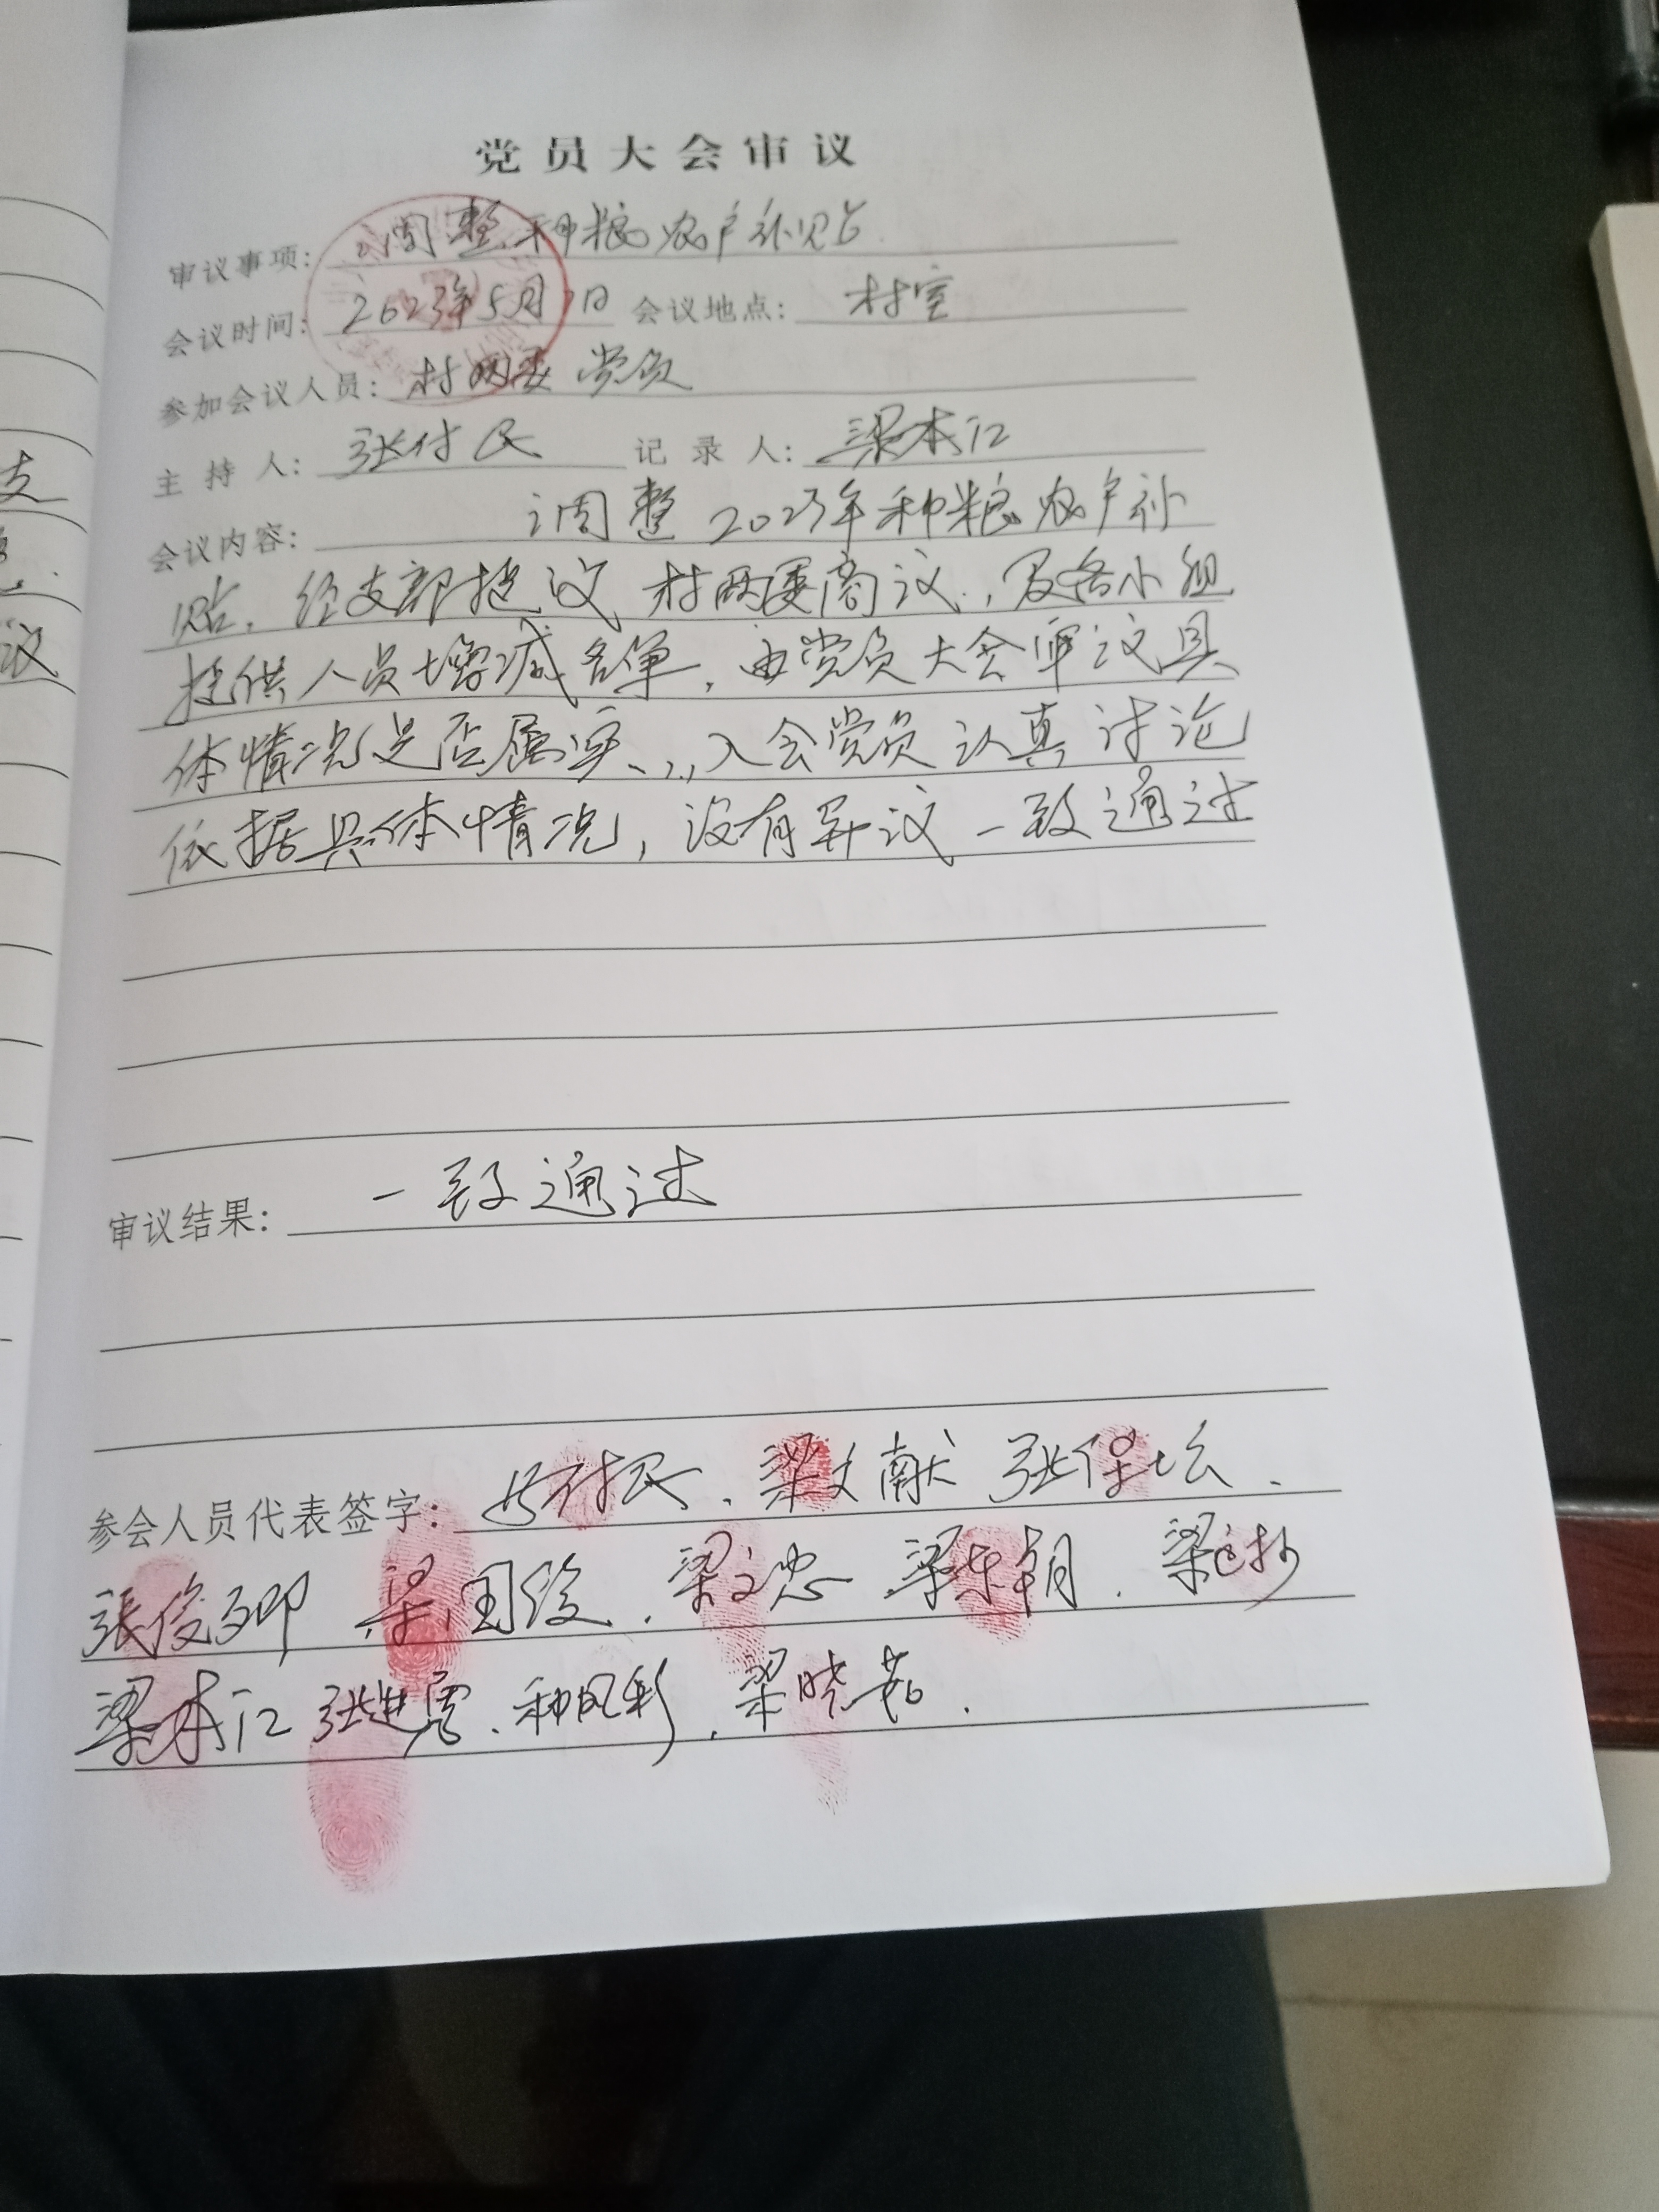 党员大会审议
审议事项: 调整种粮农户补贴
会议时间: 2023年5月 日 会议地点: 村室
参加会议人员: 村两委 党员
主持人: 张付民 记录人: 梁本江
会议内容: 调整2023年种粮农户补
贴. 经支部提议 村两委商议., 及各小组
提供人员增减名单, 由党员大会审议具
体情况是否属实. 入会党员认真讨论
依据具体情况, 没有异议 一致通过
审议结果: 一致通过
参会人员代表签字: 付民. 梁文献 张保坛.
張俊卿 梁国 . 梁文忠 梁东朝.
梁本江 张进 . 种风彩. 梁晓茹.
支
议